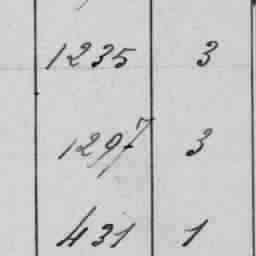 1235 3
1297 3
431 1